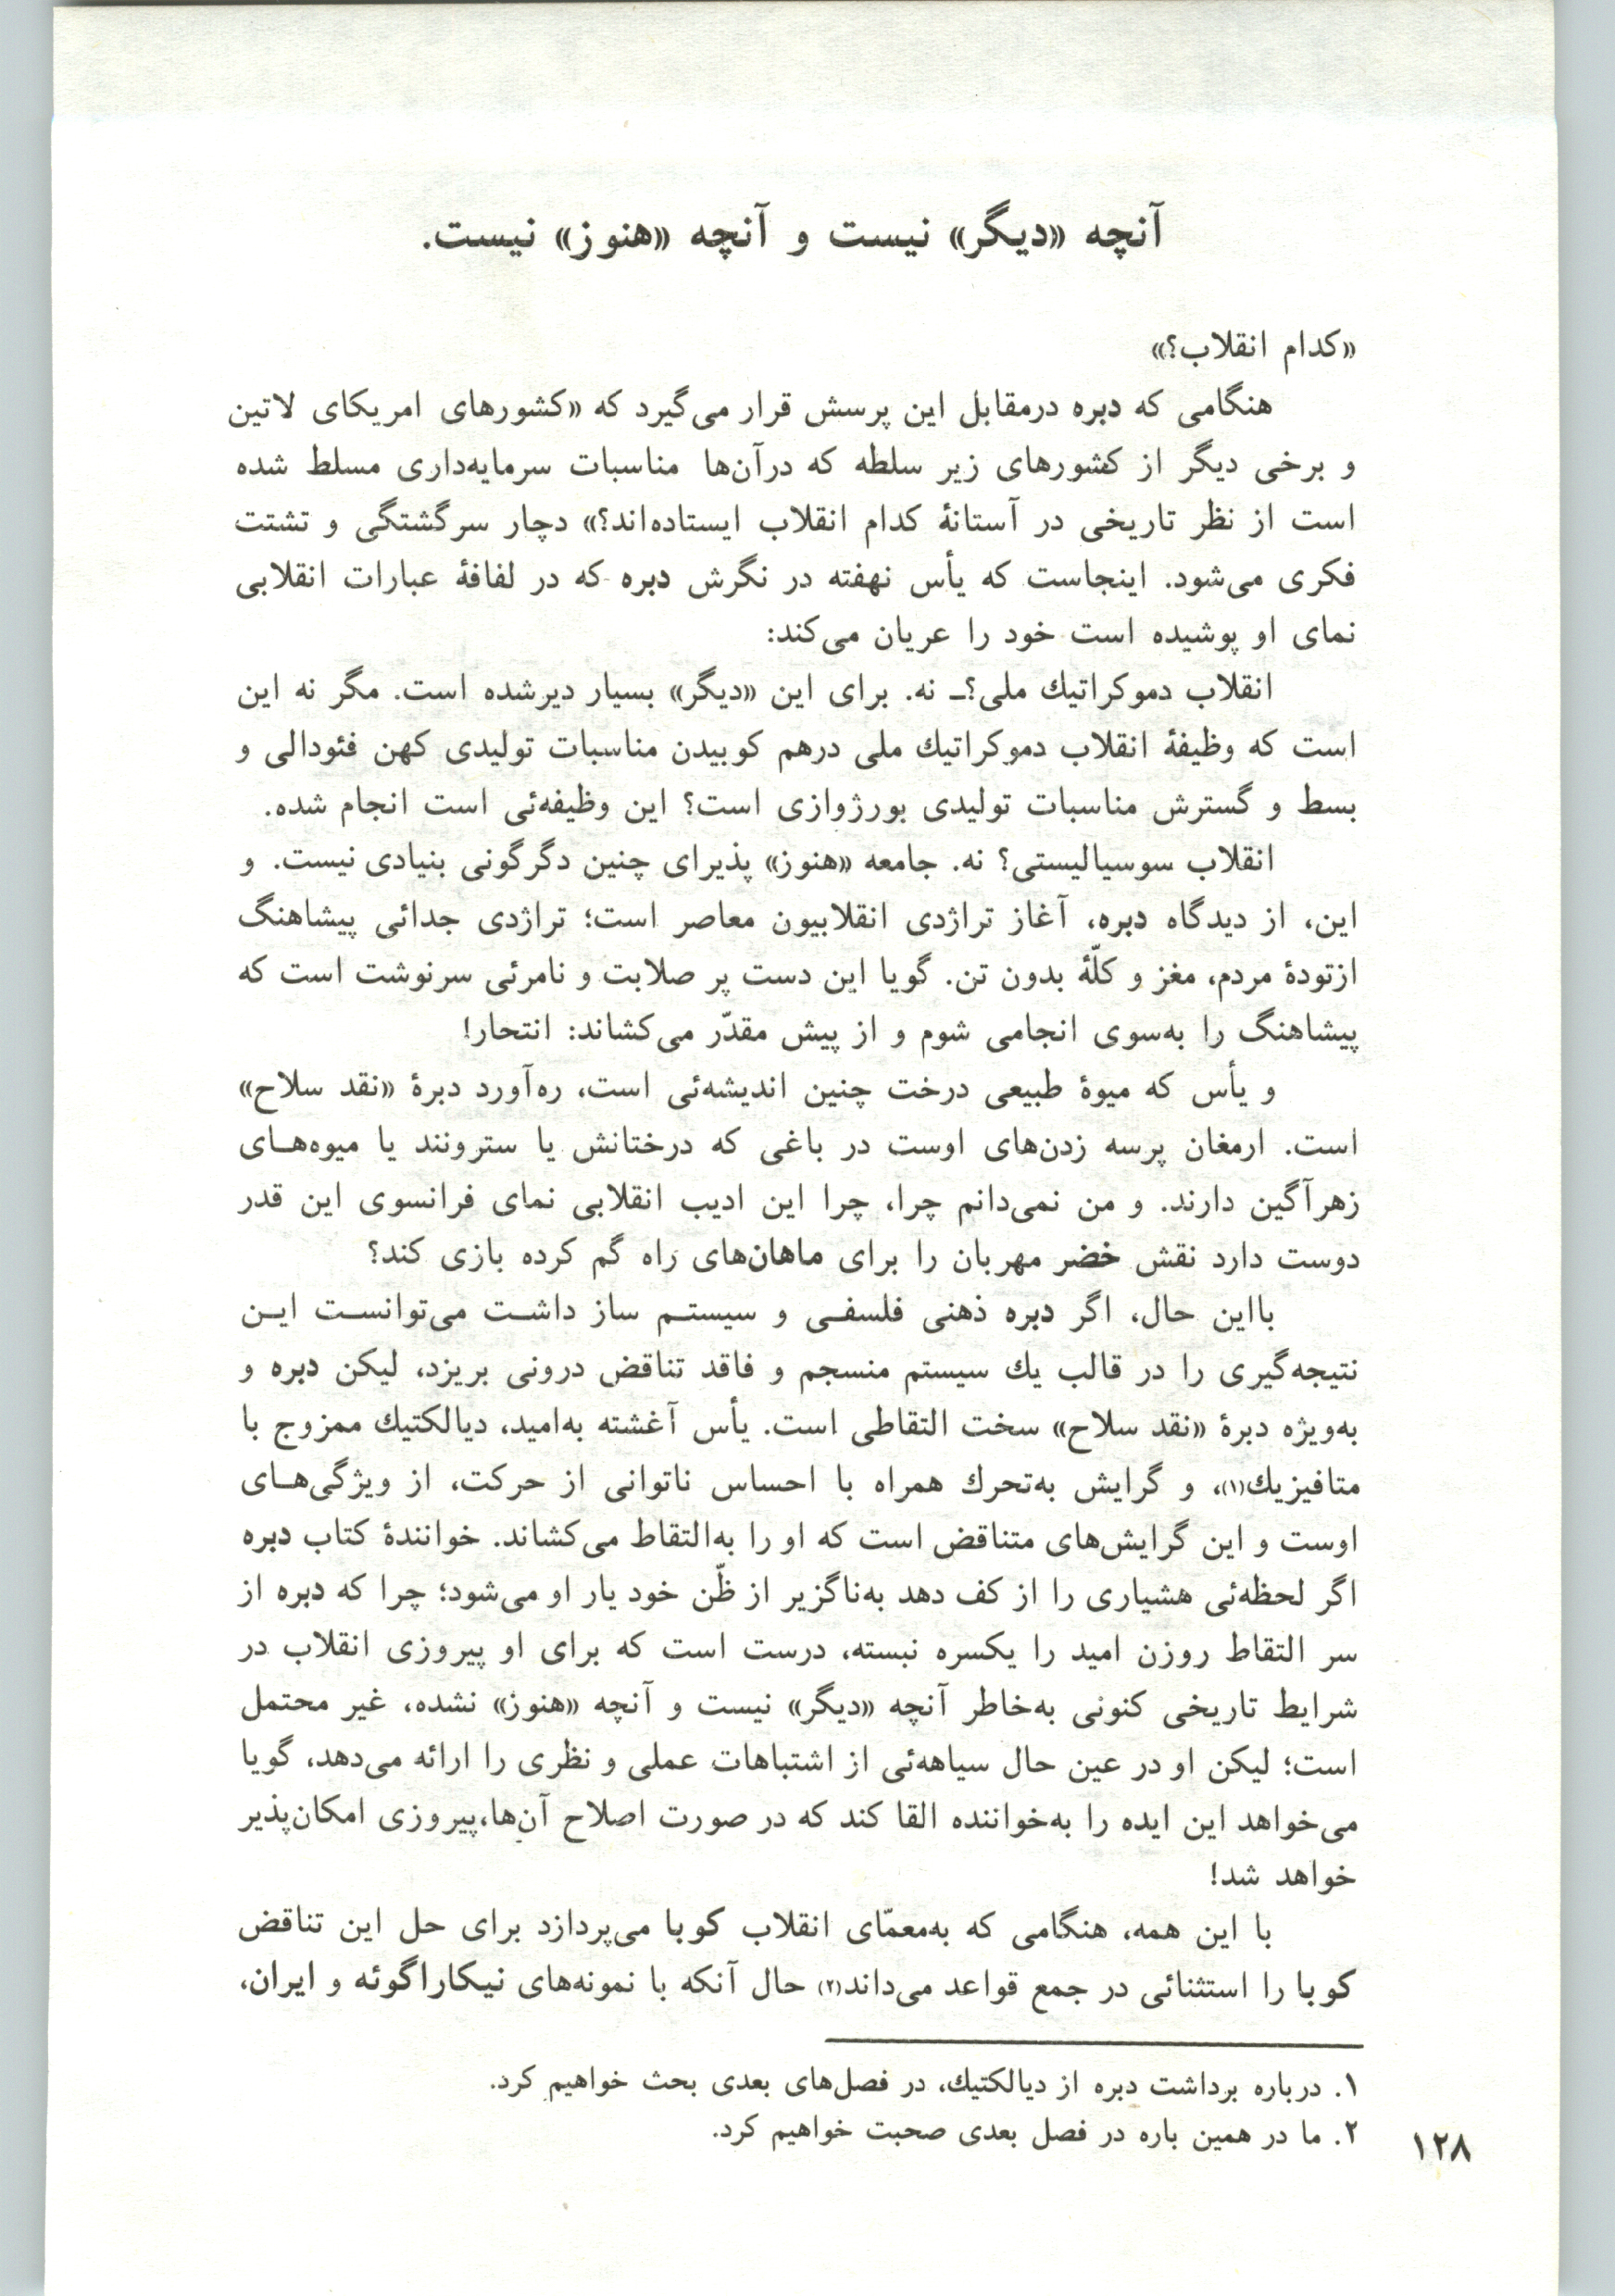 آنچه «دیگر» نیست و آنچه «هنوز» نیست.
«کدام انقلاب؟»
هنگامی که دبره درمقابل این پرسش قرار می‌گیرد که «کشورهای امریکای لاتین
و برخی دیگر از کشورهای زیر سلطه که درآن‌ها مناسبات سرمایه‌داری مسلط شده
است از نظر تاریخی در آستانهٔ کدام انقلاب ایستاده‌اند؟» دچار سرگشتگی و تشتت
فکری می‌شود. اینجاست که یأس نهفته در نگرش دبره که در لفافهٔ عبارات انقلابی
نمای او پوشیده است خود را عریان می‌کند:
انقلاب دموکراتیك ملی؟ـ نه. برای این «دیگر» بسیار دیرشده است. مگر نه این
است که وظیفهٔ انقلاب دموکراتیك ملی درهم کوبیدن مناسبات تولیدی کهن فئودالی و
بسط و گسترش مناسبات تولیدی بورژوازی است؟ این وظیفه‌ئی است انجام شده.
انقلاب سوسیالیستی؟ نه. جامعه «هنوز» پذیرای چنین دگرگونی بنیادی نیست. و
این، از دیدگاه دبره، آغاز تراژدی انقلابیون معاصر است؛ تراژدی جدائی پیشاهنگ
ازتودهٔ مردم، مغز و کلّهٔ بدون تن. گویا این دست پر صلابت و نامرئی سرنوشت است که
پیشاهنگ را به‌سوی انجامی شوم و از پیش مقدّر می‌کشاند: انتحار!
و یأس که میوهٔ طبیعی درخت چنین اندیشه‌ئی است، ره‌آورد دبرهٔ «نقد سلاح»
است. ارمغان پرسه زدن‌های اوست در باغی که درختانش یا سترونند یا میوه‌هـای
زهرآگین دارند. و من نمی‌دانم چرا، چرا این ادیب انقلابی نمای فرانسوی این قدر
دوست دارد نقش خضر مهربان را برای ماهان‌های راه گم کرده بازی کند؟
بااین حال، اگر دبره ذهنی فلسفـی و سیستـم ساز داشـت می‌توانسـت ایـن
نتیجه‌گیری را در قالب یك سیستم منسجم و فاقد تناقض درونی بریزد، لیکن دبره و
به‌ویژه دبرهٔ «نقد سلاح» سخت التقاطی است. یأس آغشته به‌امید، دیالکتیك ممزوج با
متافیزیك(۱)، و گرایش به‌تحرك همراه با احساس ناتوانی از حرکت، از ویژگی‌هـای
اوست و این گرایش‌های متناقض است که او را به‌التقاط می‌کشاند. خوانندهٔ کتاب دبره
اگر لحظه‌ئی هشیاری را از کف دهد به‌ناگزیر از ظّن خود یار او می‌شود؛ چرا که دبره از
سر التقاط روزن امید را یکسره نبسته، درست است که برای او پیروزی انقلاب در
شرایط تاریخی کنونی به‌خاطر آنچه «دیگر» نیست و آنچه «هنوز» نشده، غیر محتمل
است؛ لیکن او در عین حال سیاهه‌ئی از اشتباهات عملی و نظری را ارائه می‌دهد، گویا
می‌خواهد این ایده را به‌خواننده القا کند که در صورت اصلاح آن‌ها،پیروزی امکان‌پذیر
خواهد شد!
با این همه، هنگامی که به‌معمّای انقلاب کوبا می‌پردازد برای حل این تناقض
کوبا را استثنائی در جمع قواعد می‌داند(۲) حال آنکه با نمونه‌های نیکاراگوئه و ایران،
۱. درباره برداشت دبره از دیالکتیك، در فصل‌های بعدی بحث خواهیم کرد.
۲. ما در همین باره در فصل بعدی صحبت خواهیم کرد.
۱۲۸